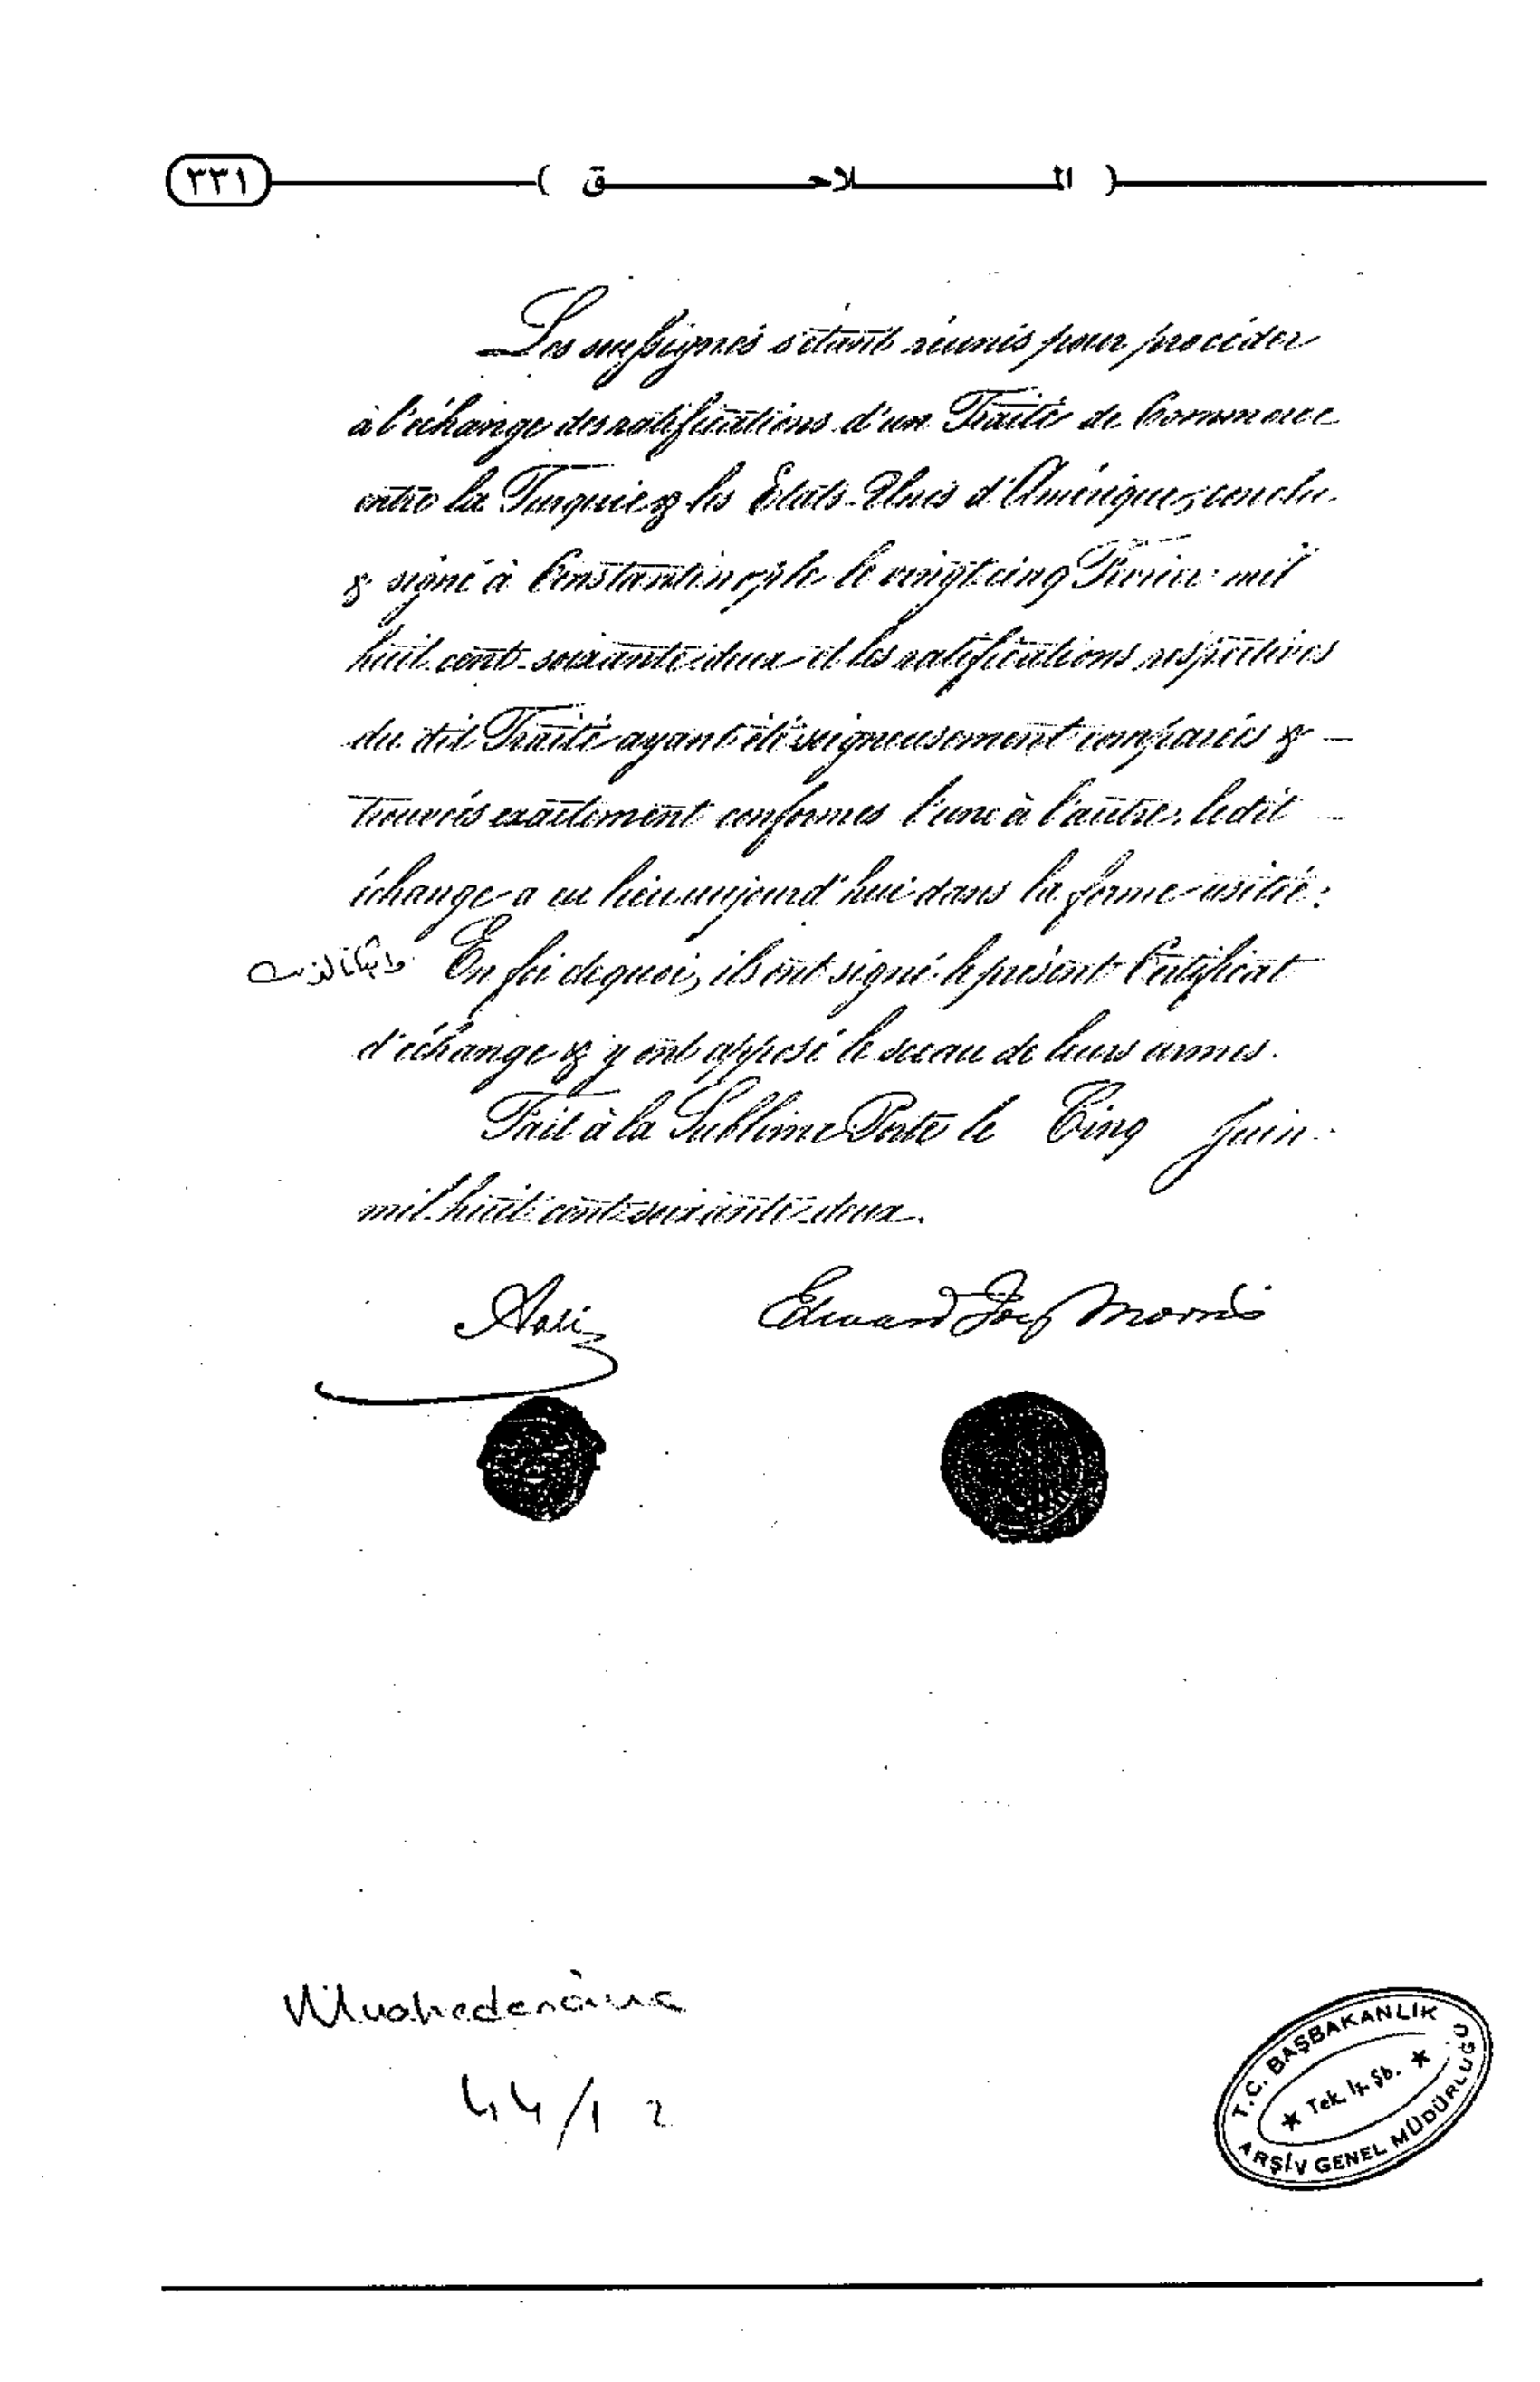 ٣٣١
( الملاحق )
Les soussignés s'étant réunis pour procéder
à l'échange des ratifications d'un Traité de Commerce
entre la Turquie & les Etats-Unis d'Amérique, conclu
& signé à Constantinople le vingt cinq Février mil
huit cent soixante deux et les ratifications respectives
du dit Traité ayant été soigneusement comparées &
trouvées exactement conformes l'une à l'autre, le dit
échange a eu lieu aujourd'hui dans la forme usitée:
En foi de quoi, ils ont signé le présent Certificat
d'échange & y ont apposé le sceau de leurs armes.
Fait à la Sublime Porte le Cinq Juin
mil huit cent soixante-deux.
Aali Edward Joy Morris
Muahedenâme
44/12
T.C. BAŞBAKANLIK
★ Tek. İş. Şb. ★
ARŞİV GENEL MÜDÜRLUĞU